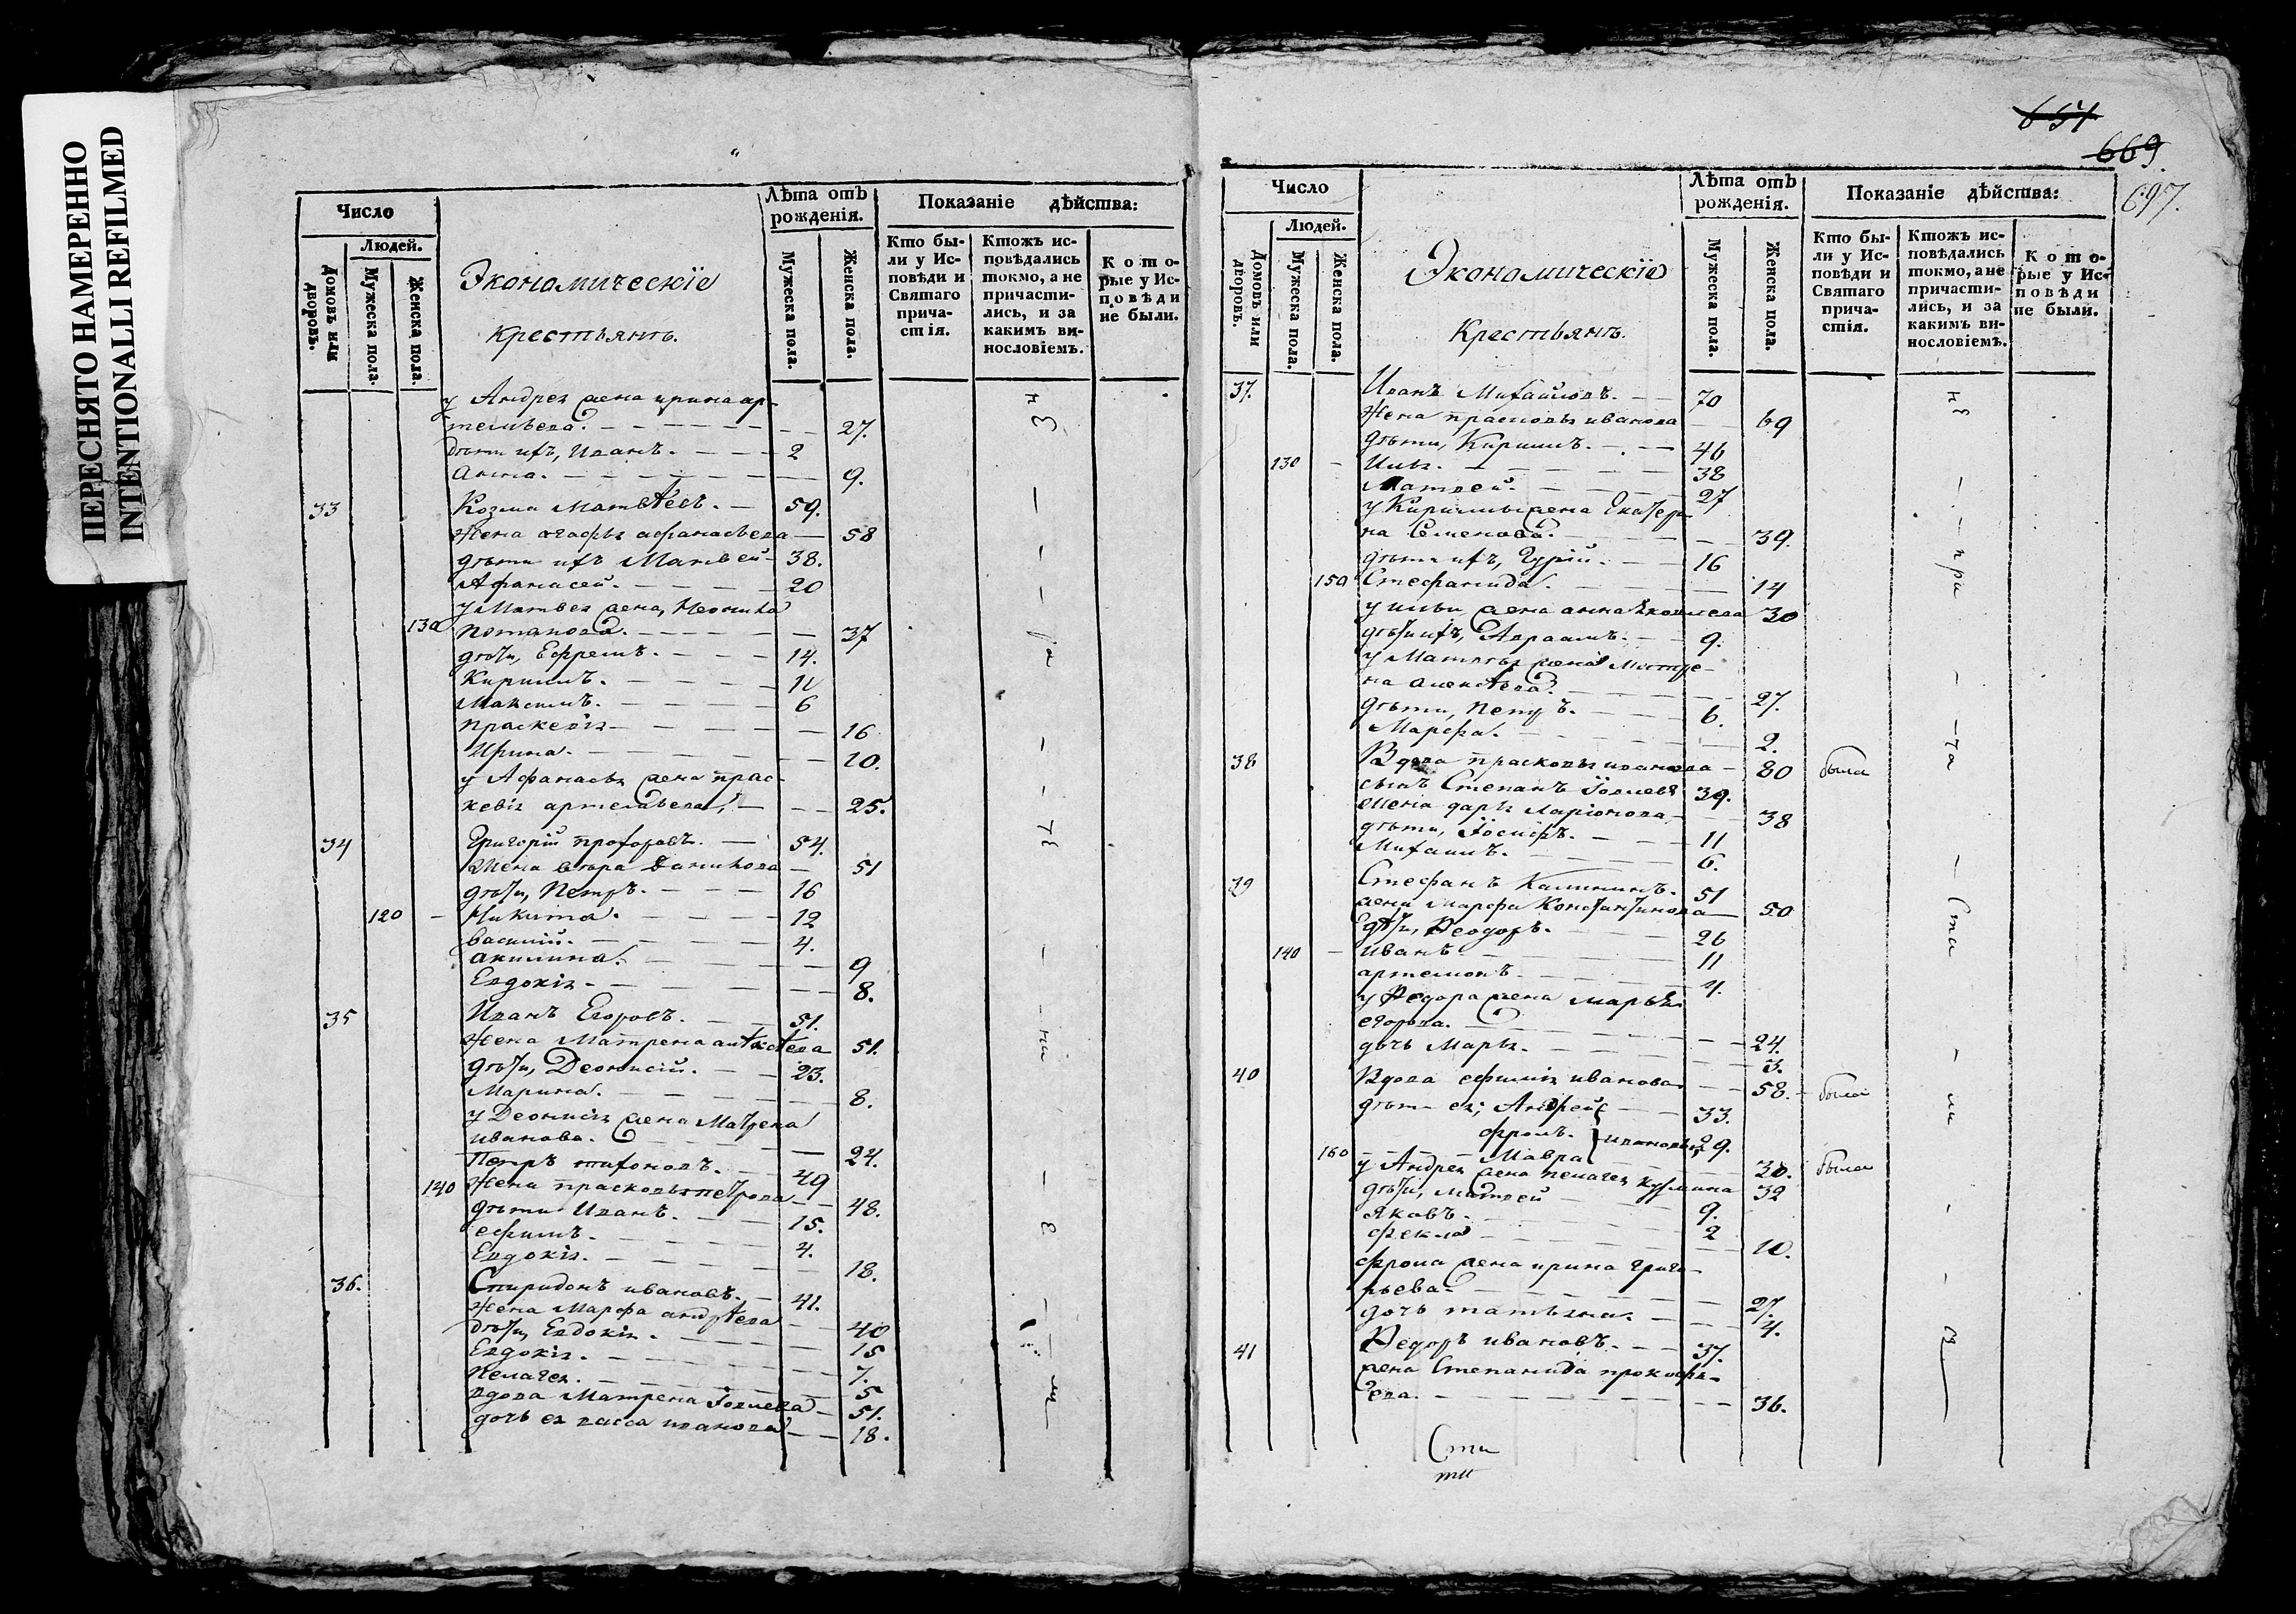 ПЕРЕСНЯТО НАМЕРЕННО
INTENTIONALLI REFILMED
Число
Людей.
Домовъ или дворовъ.
Мужеска пола.
Женска пола.
Экономическіе
крестьянъ.
Лѣта отъ рожденія.
Мужеска пола.
Женска пола.
Показаніе дѣйства:
Кто бы-
ли у Ис-
повѣди и
Святаго
прича-
стія.
Ктожъ ис-
повѣдались
токмо, а не
причасти-
лись, и за
какимъ ви-
нословіемъ.
К о т о-
рые у Ис-
п о в ѣ д и
не были.
у Андрея жена ирина ар-
темьева. 27.
дѣти ихъ, Иванъ. 2
анна. 9.
33 Козма Матвѣевъ. 59.
Жена агафья афанасьева 58
дѣти ихъ Матвей 38.
Афанасей. 20
у Матвея жена,
130 потапова. 37
дѣти, Ефремъ. 14.
Кирилъ. 11
Максимъ. 6
праскевія 16
Ирина. 10.
у Афанасья жена прас-
кевія артемьева, 25.
34 Григорій прохоровъ. 54.
Жена 51
дѣти, Петръ. 16
120 Никита. 12
василій. 4.
акилина. 9
Евдокія. 8.
35 Иванъ Егоровъ. 51.
Жена Матрена алексѣева 51.
дѣти, Деонисій. 23.
Марина. 8.
у Деонисія жена Матрена
иванова. 24.
Петръ тихоновъ. 49
140 Жена прасковья петрова 48.
дѣти Иванъ. 15.
ефимъ. 4.
Евдокія. 18.
36. Спиридонъ ивановъ. 41.
Жена Марфа андрѣева 40
дѣти, Евдокія. 15
Евдокія. 7.
Пелагея. 5
вдова Матрена Іовлева 51.
дочь ея васса иванова 18.
651
669.
697.
Число
Людей.
Домовъ или дворовъ.
Мужеска пола.
Женска пола.
Экономическіе
Крестьянъ.
Лѣта отъ рожденія.
Мужеска пола.
Женска пола.
Показаніе дѣйства:
Кто бы-
ли у Ис-
повѣди и
Святаго
прича-
стія.
Ктожъ ис-
повѣдались
токмо, а не
причасти-
лись, и за
какимъ ви-
нословіемъ.
К о т о-
рые у Ис-
п о в ѣ д и
не были.
37. Иванъ Михайловъ. 70
Жена прасковья иванова 69
дѣти, Кирилъ. 46
130 Илья. 38
Матвей. 27
у Кирилы жена Екатери-
на Семенова. 39.
дѣти ихъ, Гурій. 16
150 Стефанида. 14
у ильи жена анна яковлева 30
дѣти ихъ, Авраамъ. 9.
у Матвея жена Матре-
на алексѣева. 27.
дѣти, Петръ. 6.
Марфа. 2.
38 Вдова прасковья иванова 80 была
сынъ Степанъ Іовлевъ 39.
жена дарья Ларіонова 38
дѣти, Іосифъ. 11
Михаилъ. 6.
39 Стефанъ Калининъ. 51
жена Марфа Константинова 50
дѣти, Ѳеодоръ. 26
140 Иванъ 11
артемонъ 4.
у Ѳедора жена марья
егорова. 24.
дочь Марья. 3.
40 Вдова ефимія иванова 58. была
дѣти ея; Андрей 33.
фролъ. ивановы, 29.
160 Мавра 30. была
у Андрея жена пелагея кузмина 32
дѣти, Матвей 9.
Яковъ. 2
фекла 10.
фрола жена ирина григо-
рьева 27.
дочь татьяна. 4.
41 Ѳедоръ ивановъ. 37.
жена Степанида прокофь-
ева. 36.